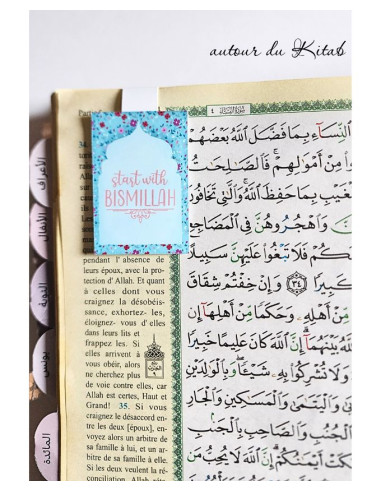 autour du Kitab
start with
BISMILLAH
الأعراف
الأنفال
التوبة
يونس
المائدة
34.
pendant l'absence de
leurs époux, avec la pro-
tection d'Allah. Et quant
à celles dont vous
craignez la désobéis-
sance, exhortez- les,
éloignez- vous d'elles
dans leurs lits et
frappez les. Si
elles arrivent à
vous obéir, alors
ne cherchez plus
de voie contre elles, car
Allah est certes, Haut et
Grand! 35. Si vous
craignez le désaccord en-
tre les deux [époux], en-
voyez alors un arbitre de
sa famille à lui, et un ar-
bitre de sa famille à elle.
Si les deux veulent la ré-
conciliation, Allah réta-
النِّسَاءِ بِمَا فَضَّلَ اللَّهُ بَعْضَهُمْ
مِنْ أَمْوَالِهِمْ فَالصَّالِحَاتُ
لِّلْغَيْبِ بِمَا حَفِظَ اللَّهُ وَالَّتِي تَخَافُونَ
وَاهْجُرُوهُنَّ فِي الْمَضَاجِعِ
فَلَا تَبْغُوا عَلَيْهِنَّ
كَبِيرًا ٣٤ وَإِنْ خِفْتُمْ شِقَاقَ
مِنْ أَهْلِهِ وَحَكَمًا مِنْ أَهْلِهَا إِنْ
اللَّهُ بَيْنَهُمَا إِنَّ اللَّهَ كَانَ عَلِيمًا خَبِيرًا
وَلَا تُشْرِكُوا بِهِ شَيْئًا وَبِالْوَالِدَيْنِ
وَالْيَتَامَى وَالْمَسَاكِينِ وَالْجَارِ
الْجُنُبِ وَالصَّاحِبِ بِالْجَنْبِ
أَيْمَانُكُمْ إِنَّ اللَّهَ لَا يُحِبُّ مَنْ